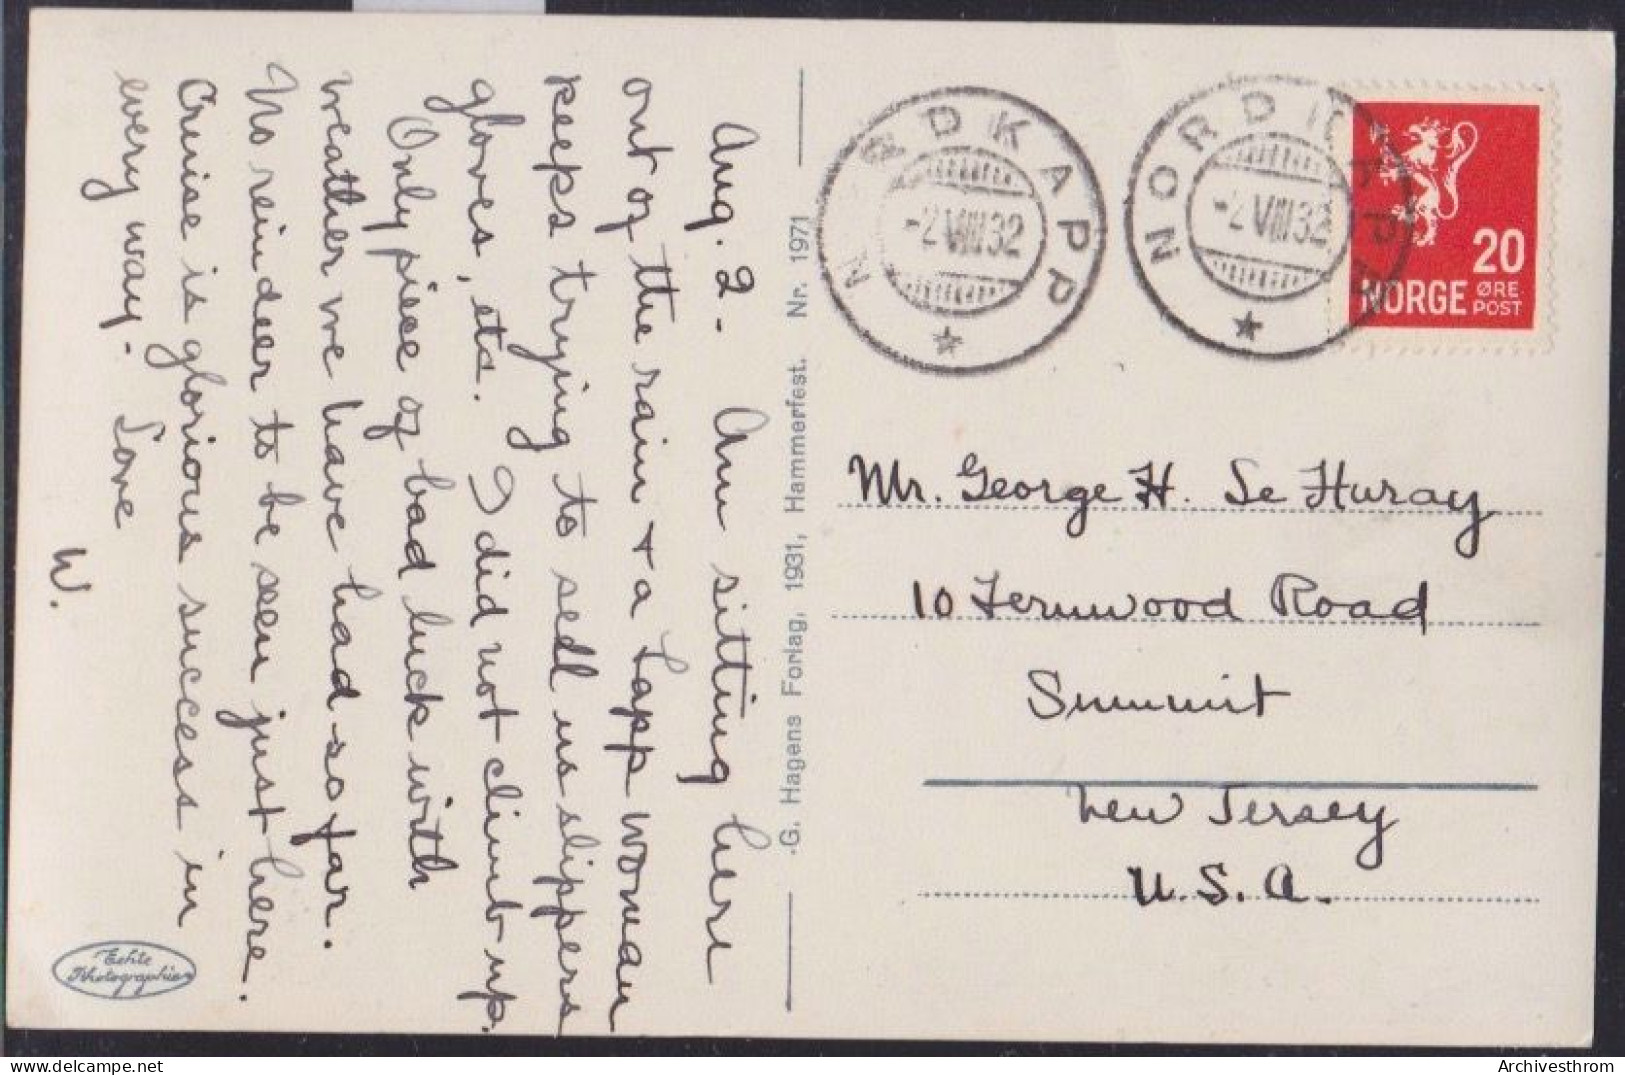 Aug. 2 - Am sitting here
out of the rain + a Lapp woman
keeps trying to sell us slippers
gloves, etc. I did not climb up.
Only piece of bad luck with
weather we have had so far.
No reindeer to be seen just here.
Cruise is glorious success in
every way - Love
W.
Echte
Photographie
G. Hagens Forlag, 1931, Hammerfest. Nr. 1971
NORDKAPP
-2 VIII 32
NORDKAPP
-2 VIII 32
20
NORGE ØRE
POST
Mr. George H. Le Huray
10 Fernwood Road
Summit
New Jersey
U.S.A.
delcampe.net
Archivesthrom